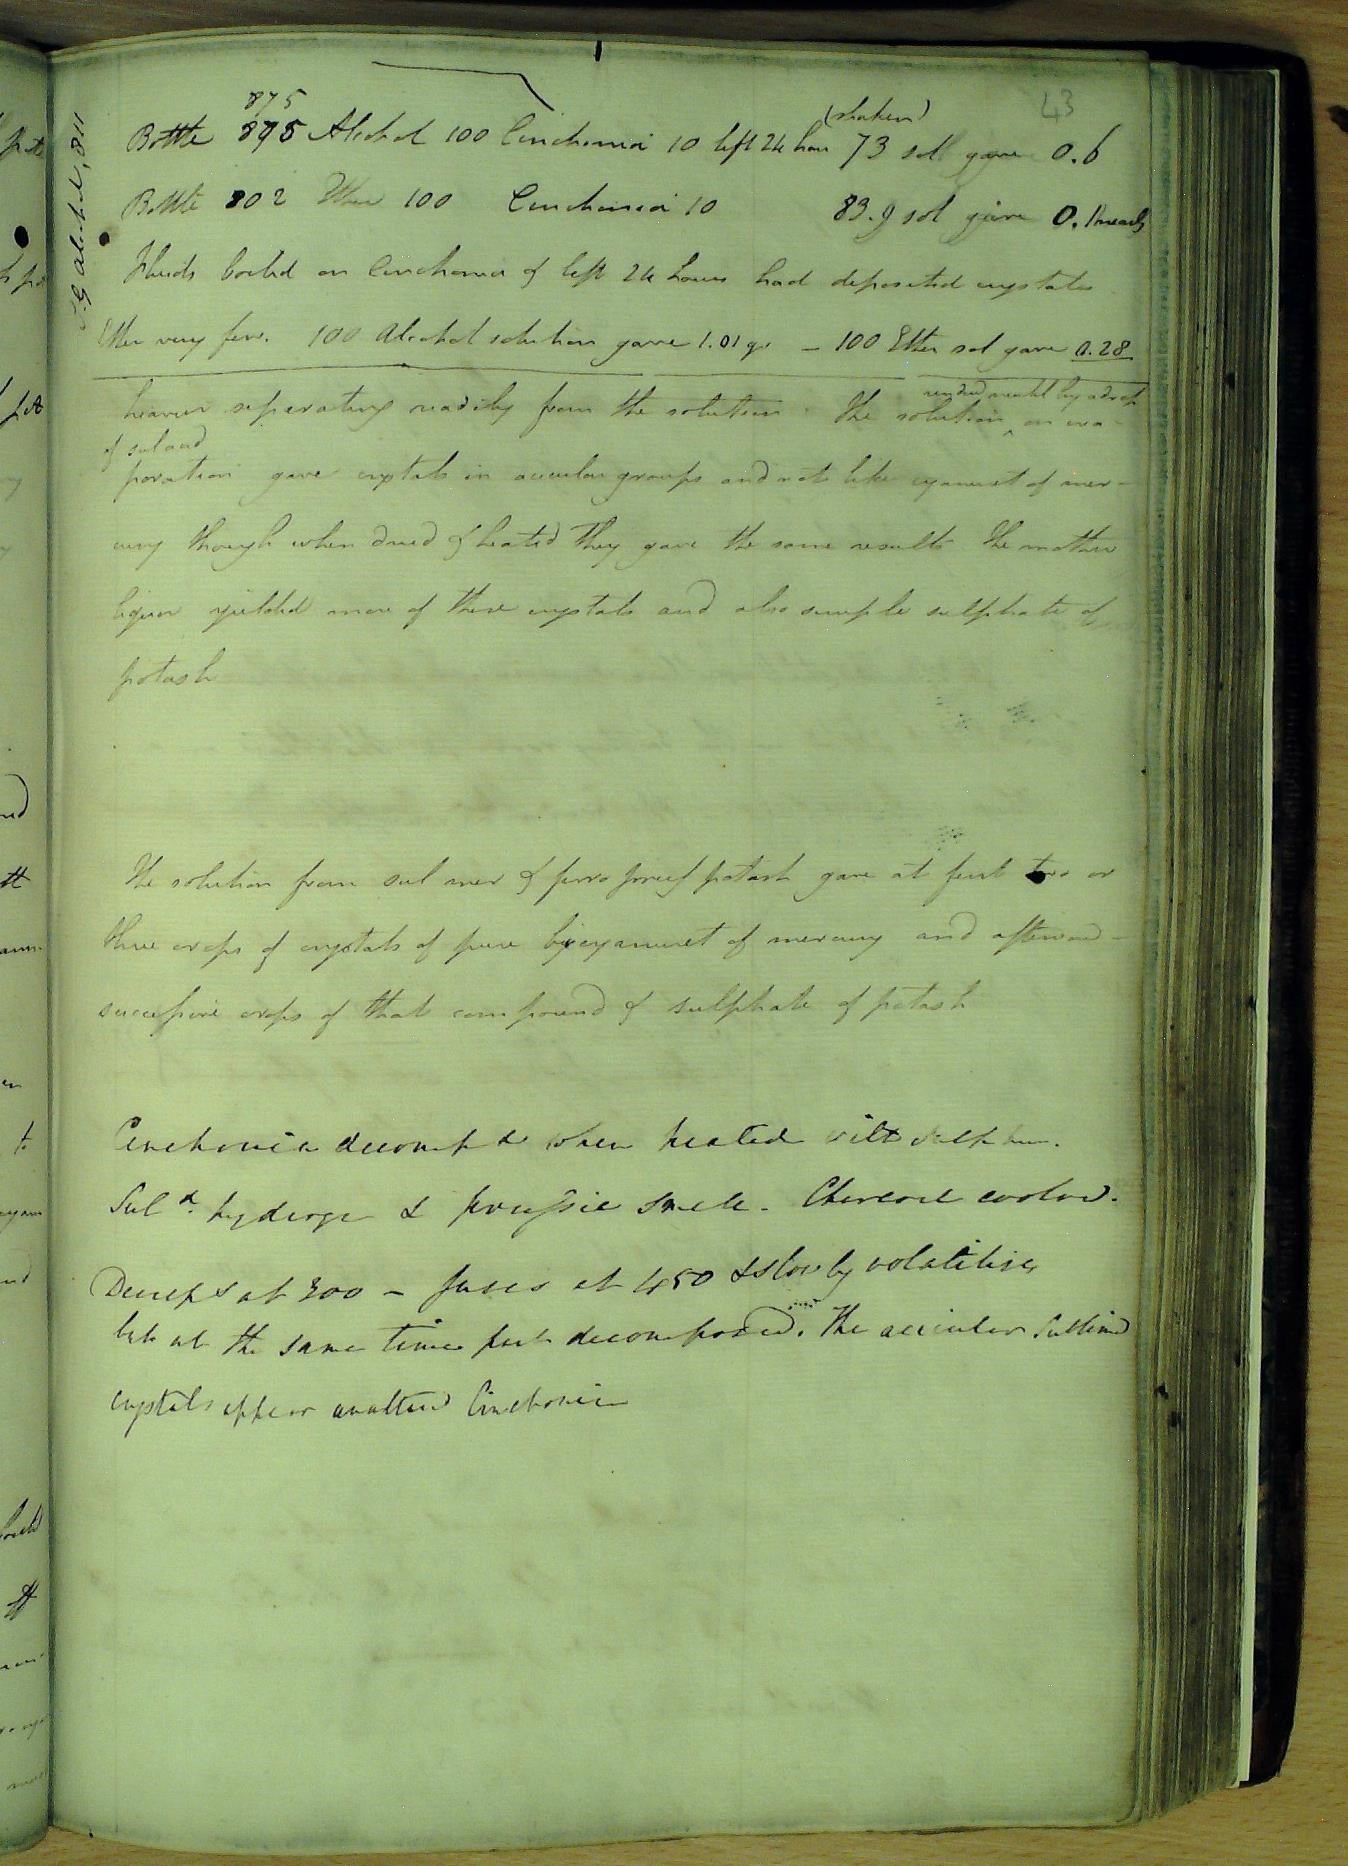 43
875
(shaken)
Bottle 875 Alcohol 100 Cinchonia 10 left 24 hour 73 sol gave 0.6
Bottle 802 Ether 100 Cinchonia 10 83.9 sol gave 0.1 nearly
S.G alcohol, 811
Fluids boiled on Cinchonia & left 24 hours had deposited crystals
Ether very few. 100 Alcohol solution gave 1.01 gr – 100 Ether sol gave 0.28
heavier separating readily from the solution. The solution on eva-
of sul acid
poration gave crystals in acicular groups and not like cyanuret of mer-
cury though when dried & heated they gave the same results The mother
liquor yielded more of these crystals and also simple sulphate of
potash
The solution from sul mer & ferro prus potash gave at first two or
three crops of crystals of pure bicyanuret of mercury and afterward-
successive crops of that compound & sulphate of potash
Cinchonia decompd when heated with sulphur.
Suld. hydroge & prussic smell. Charcoal
at 300 – fuses at 450 & slowly volatilises
but at the same time part decomposed. The acicular sublimed
crystals appear unaltered Cinchonia